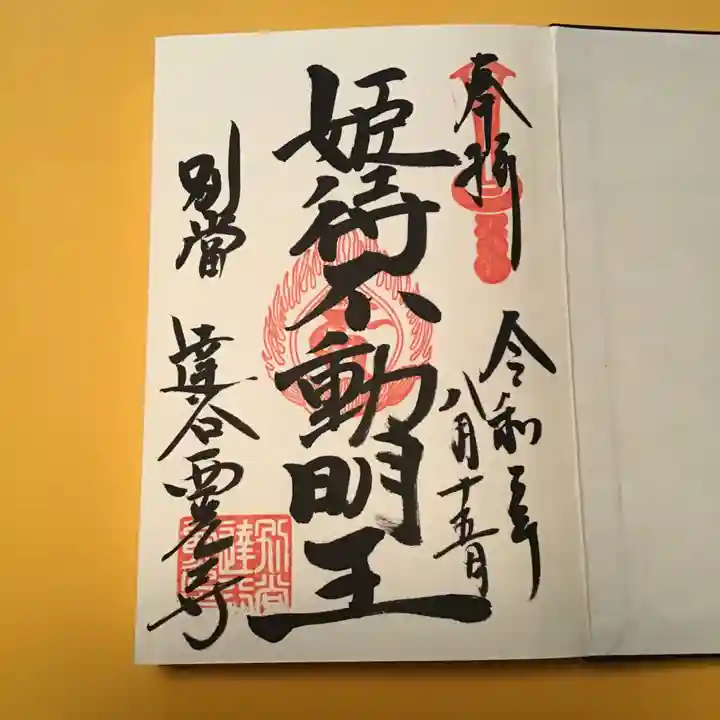 奉拝
令和三年
八月十五日
姫待不動明王
別當
達谷西光寺